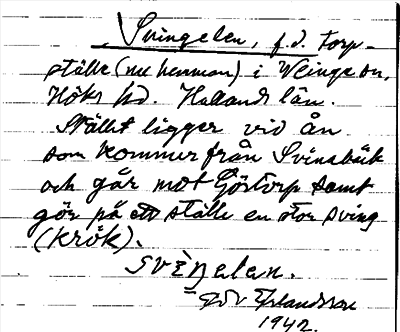 Svingelen, f.d. torp-
ställe (nu hemman) i Veinge sn,
Höks hd. Hallands län.
Stället ligger vid ån
som kommer från Svinabäck
och går mot Göstorp samt
gör på ett ställe en stor sving
(krök).
svèŋelen.
Edv Erlandsson
1942.